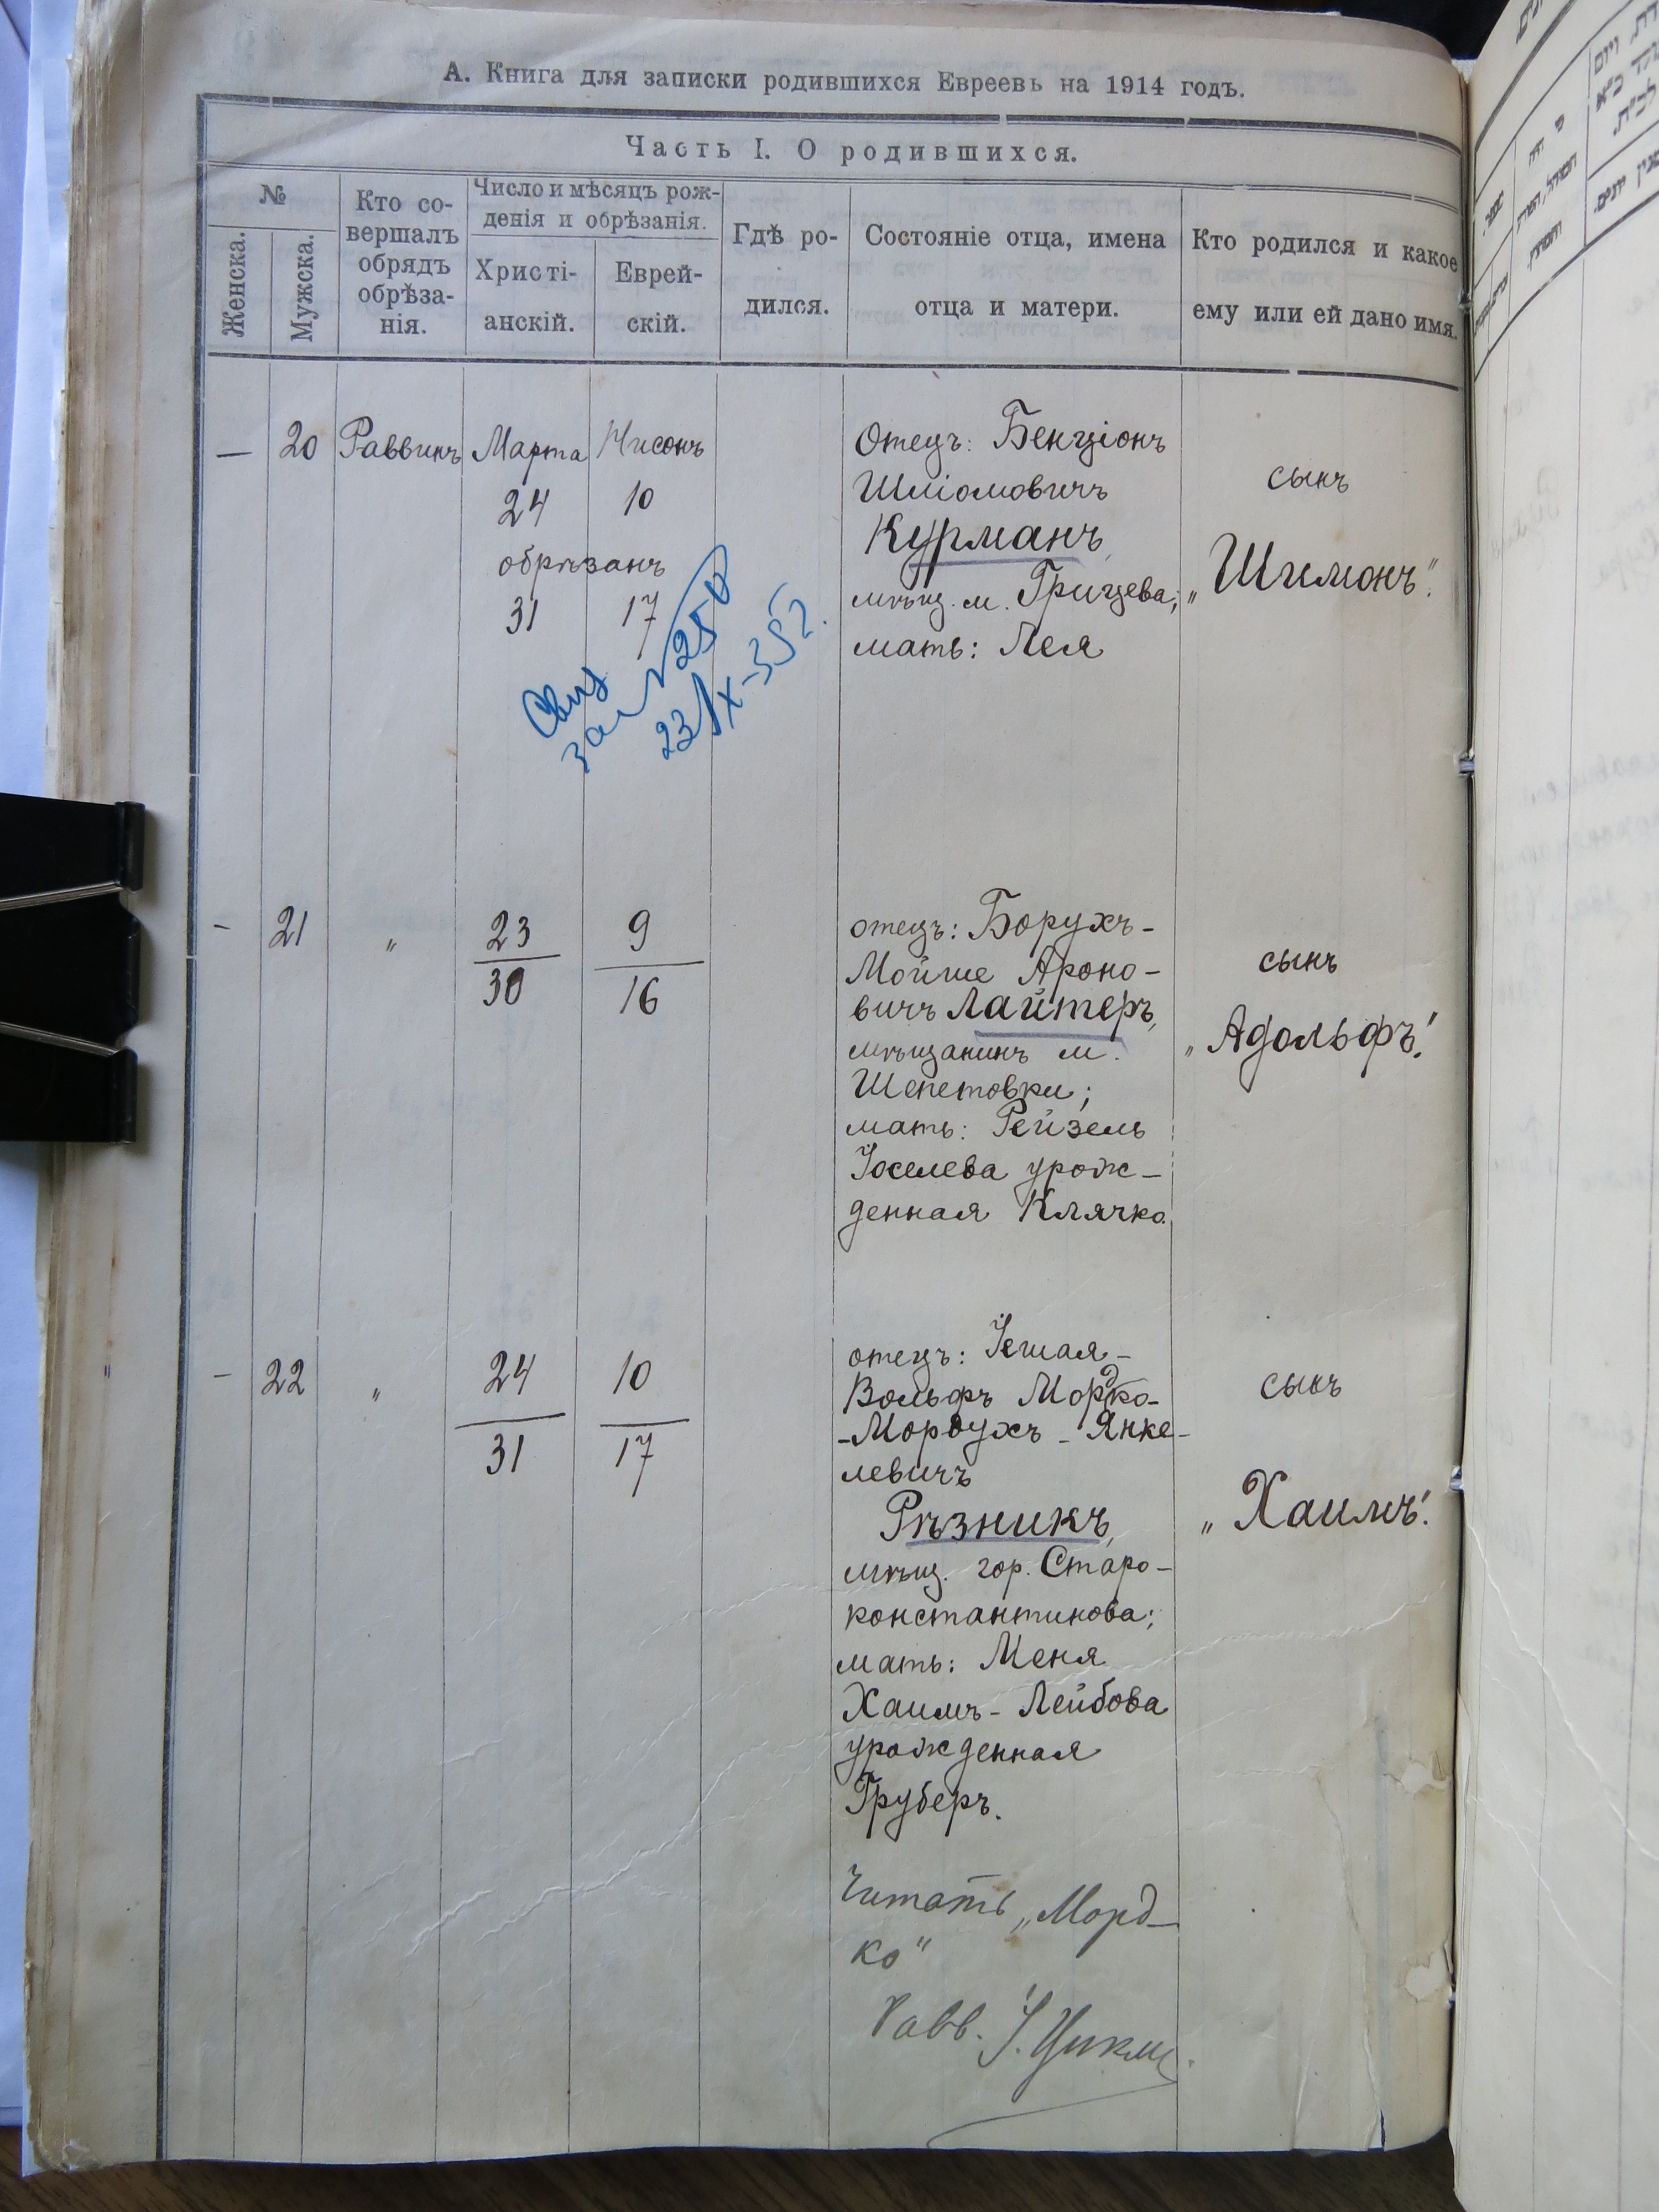 А. Книга для записки родившихся Евреевъ на 1914 годъ.
Часть I. О родившихся.
№
Женска.
Мужска.
Кто со-
вершалъ
обрядъ
обрѣза-
нія.
Число и мѣсяцъ рож-
денія и обрѣзанія.
Христі-
анскій.
Еврей-
скій.
Гдѣ ро-
дился.
Состояніе отца, имена
отца и матери.
Кто родился и какое
ему или ей дано имя.
— 20 Раввинъ Марта Нисонъ
24 10
обрѣзанъ
31 17
Отецъ: Бенціонъ
Шліомовичъ
Курманъ,
мѣщ. м. Грицева;
мать: Лея
сынъ
„Шимонъ".
за №250
- 21 „ 23 9
30 16
отецъ: Борухъ-
Мойше Ароно-
вичъ Лайтеръ,
мѣщанинъ м.
Шепетовки;
мать: Рейзель
Іоселева урож-
денная Клячко.
сынъ
„Адольфъ".
- 22 „ 24 10
31 17
отецъ: Іешая-
Вольфъ Мордко-
-Мордухъ - Янке-
левичъ
Рѣзникъ,
мѣщ. гор. Старо-
константинова;
мать: Меня
Хаимъ - Лейбова
урожденная
Груберъ.
сынъ
„Хаимъ".
Читать „Морд-
ко"
Равв.